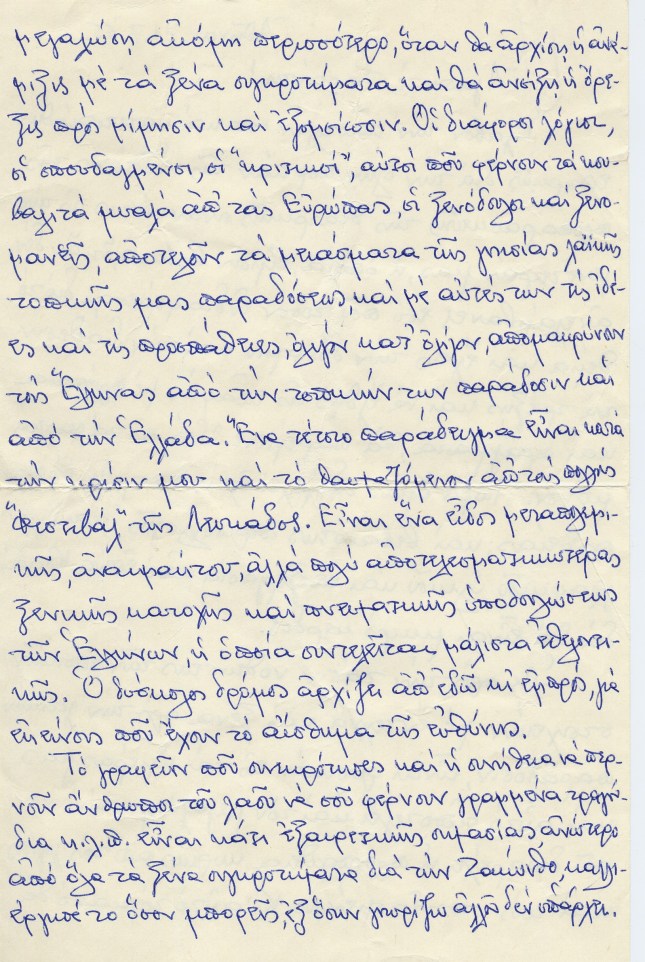 μεγαλώση ἀκόμη περισσότερο, ὅταν θὰ ἀρχίση ἡ ἀνά-
μιξις μὲ τὰ ξένα συγκροτήματα καὶ θὰ ἀνοίξη ἡ ὄρε-
ξις πρὸς μίμησιν καὶ ἐξομοίωσιν. Οἱ διάφοροι λόγιοι,
οἱ σπουδαγμένοι, οἱ "κριτικοί", αὐτοὶ ποῦ φέρνουν τὰ κου-
βαλιτὰ μυαλὰ ἀπ' τὰς Εὐρώπας, οἱ ξενόδουλοι καὶ ξενο-
μανεῖς, ἀποτελοῦν τὰ μιάσματα τῆς γνησίας λαϊκῆς
τοπικῆς μας παραδόσεως, καὶ μὲ αὐτές των τὶς ἰδέ-
ες καὶ τὶς προσπάθειες, ὀλίγον κατ' ὀλίγον, ἀπομακρύνουν
τοὺς Ἕλληνας ἀπὸ τὴν τοπικήν των παράδοσιν καὶ
ἀπὸ τὴν Ἑλλάδα. Ἕνα τέτοιο παράδειγμα εἶναι κατὰ
τὴν κρίσιν μου καὶ τὸ θαυμαζόμενον ἀπ τοὺς πολλοὺς
"Φεστιβὰλ" τῆς Λευκάδος. Εἶναι ἕνα εἶδος μεταπολεμι-
κῆς, ἀναιμάκτου, ἀλλὰ πολὺ ἀποτελεσματικωτέρας
ξενικῆς κατοχῆς καὶ πνευματικῆς ὑποδουλώσεως
τῶν Ἑλλήνων, ἡ ὁποία συντελεῖται μάλιστα ἐθελοντι-
κῶς. Ὁ δύσκολος δρόμος ἀρχίζει ἀπ' ἐδῶ κι' ἐμπρός, γιὰ
ἐκείνους ποῦ ἔχουν τὸ αἴσθημα τῆς εὐθύνης.
Τὸ γραφεῖον ποῦ συνεκρότησες καὶ ἡ συνήθεια νὰ περ-
νοῦν ἄνθρωποι τοῦ λαοῦ νὰ σοῦ φέρνουν γραμμένα τραγού-
δια κ.λ.π. εἶναι κάτι ἐξαιρετικῆς σημασίας ἀνώτερο
ἀπὸ ὅλα τὰ ξένα συγκροτήματα διὰ τὴν Ζάκυνθο, καλλι-
έργησέ το ὅσον μπορεῖς, ἐξ ὅσων γνωρίζω ἀλλοῦ δὲν ὑπάρχει.